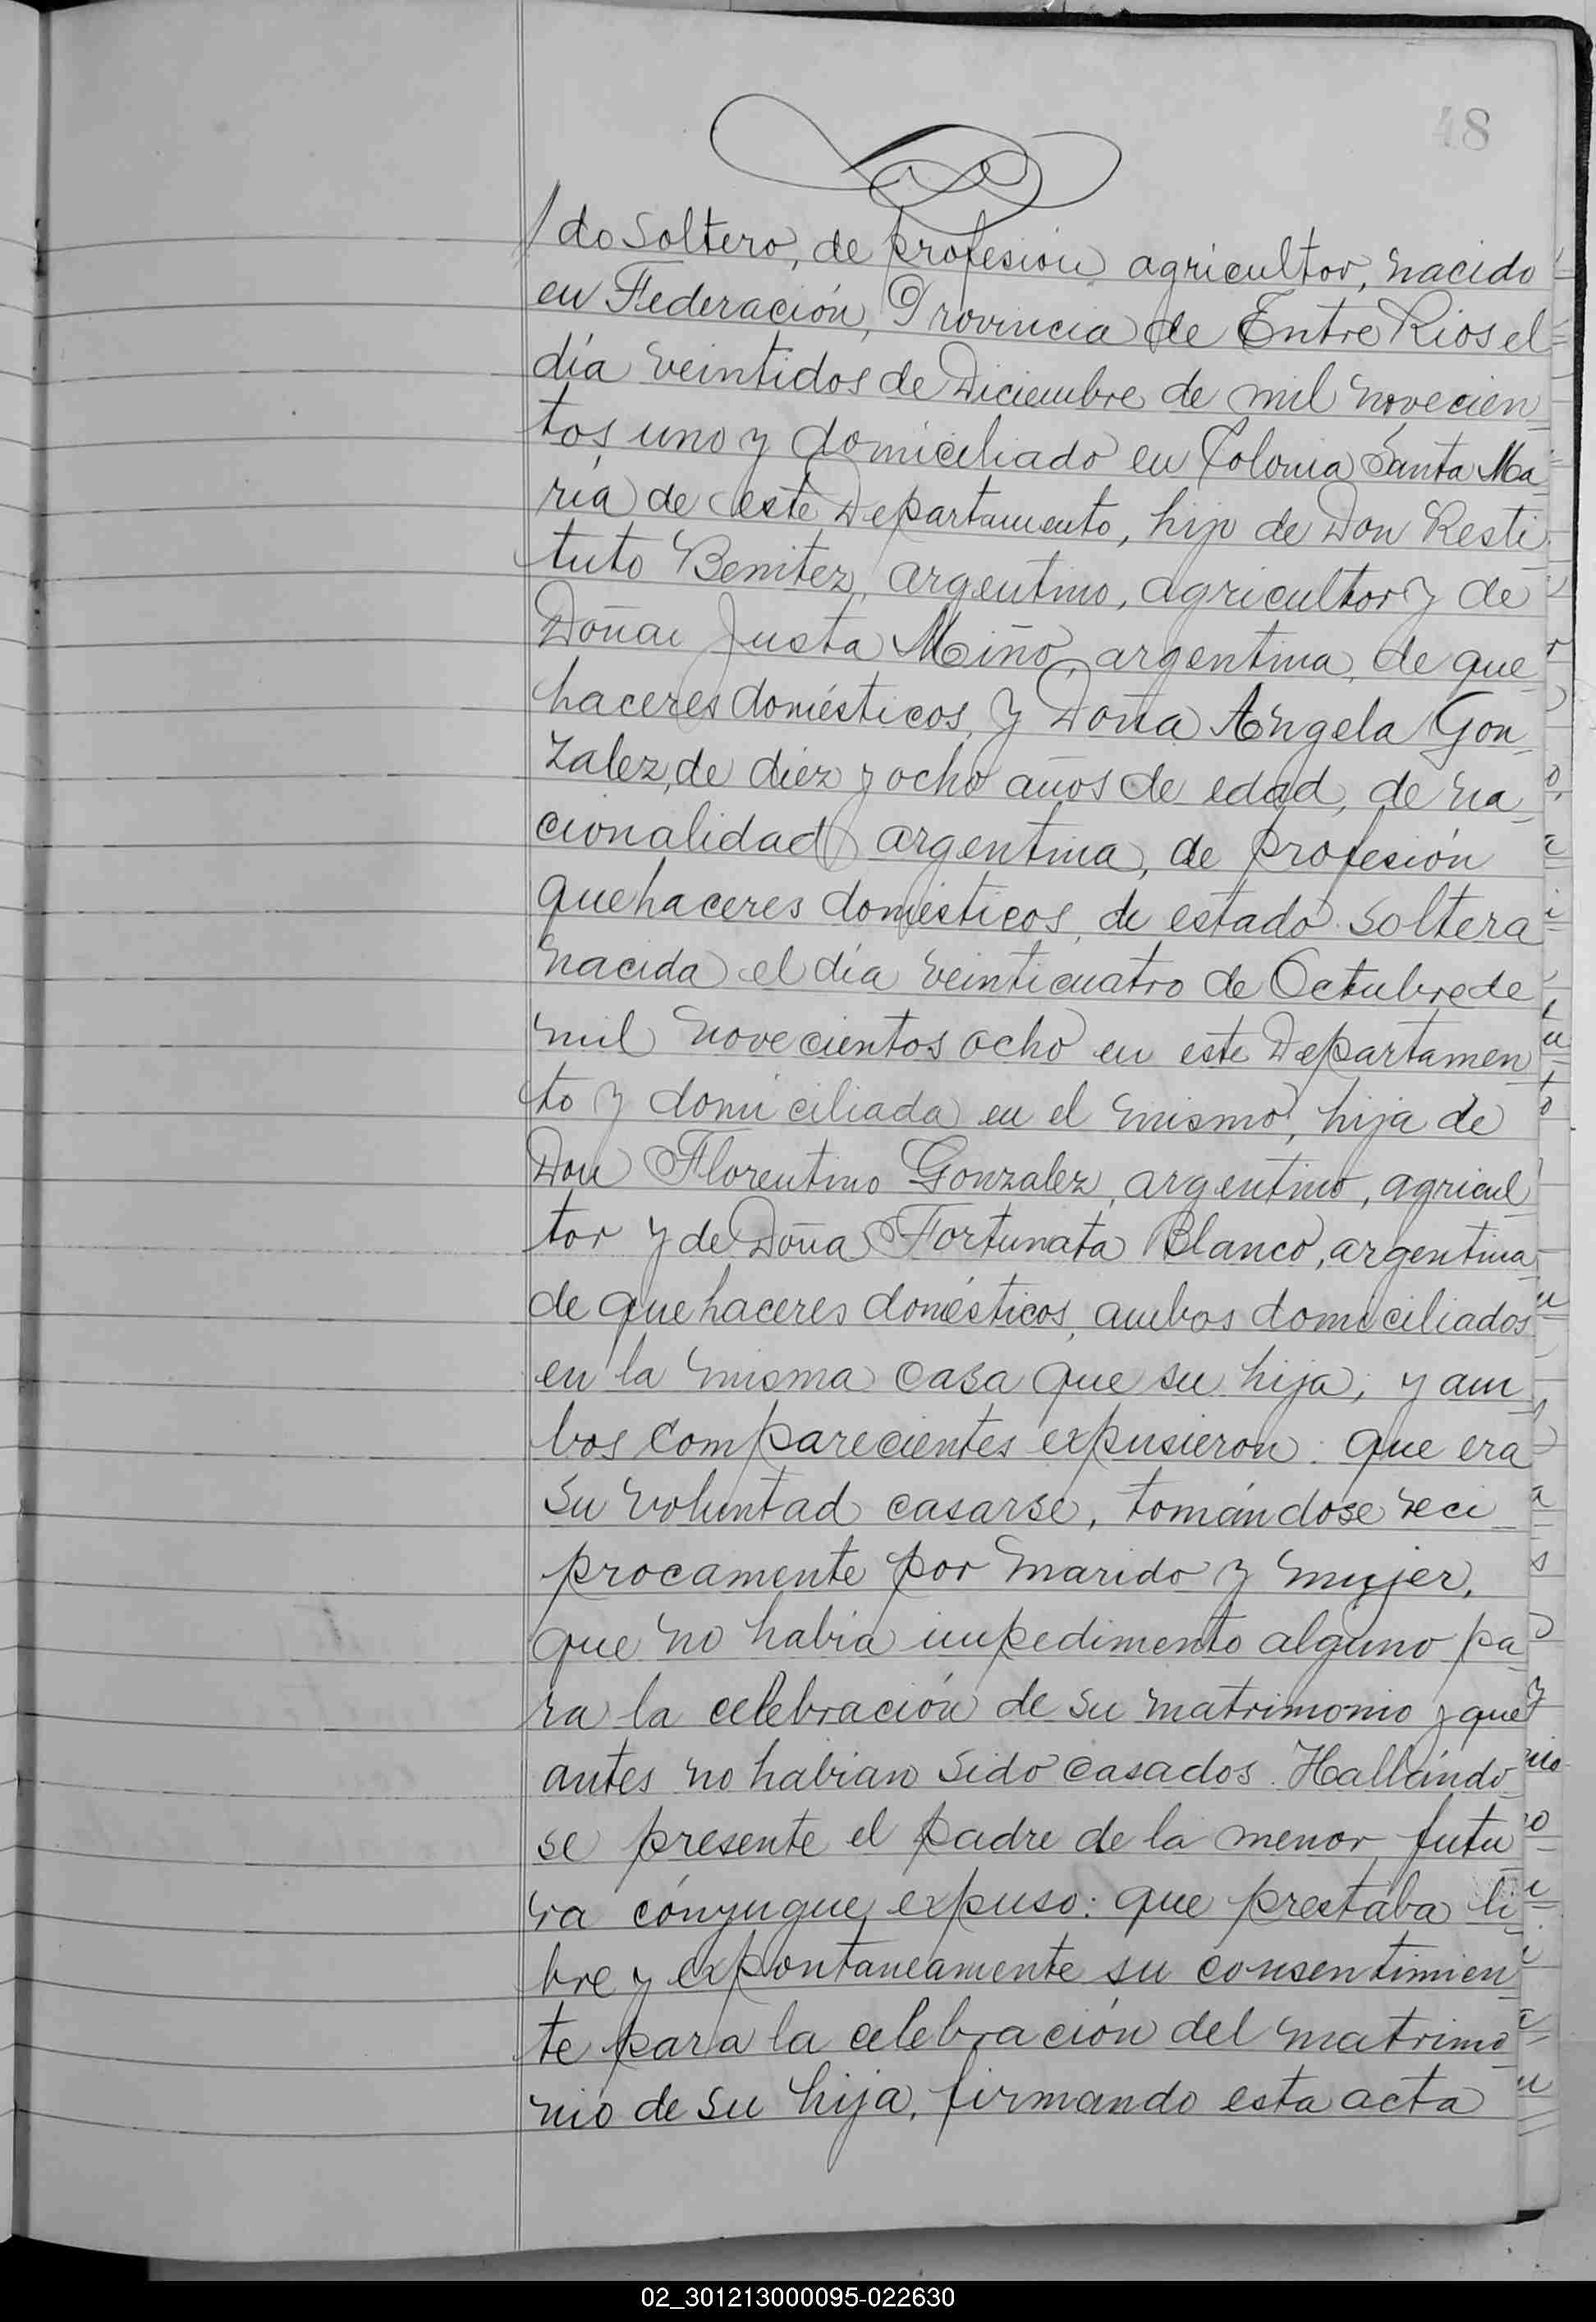 48
/do Soltero, de profesión agricultor, nacido
en Federación, Provincia de Entre Rios el
día veintidos de Diciembre de mil novecien
tos uno y domiciliado en Colonia Santa Ma
ría de este Departamento, hijo de Don Resti
tuto Benitez, argentino, agricultor y de
Doña Justa Miño, argentina, de que
haceres domésticos, y Doña Angela Gon
zalez, de diez y ocho años de edad, de na
cionalidad argentina, de profesión
quehaceres domésticos, de estado soltera
nacida el día veinticuatro de Octubre de
mil novecientos ocho en este Departamen
to y domiciliada en el mismo, hija de
Don Florentino Gonzalez, argentino, agricul
tor y de Doña Fortunata Blanco, argentina
de quehaceres domésticos, ambos domiciliados
en la misma casa que su hija; y am
bos comparecientes expusieron: que era
su voluntad casarse, tomándose reci
procamente por marido y mujer,
que no habia impedimento alguno pa
ra la celebración de su matrimonio y que
antes no habian sido casados. Hallándo
se presente el padre de la menor futu
ra cónyugue, expuso: que prestaba li
bre y expontaneamente su consentimien
te para la celebración del matrimo
nio de su hija, firmando esta acta
02_301213000095-022630